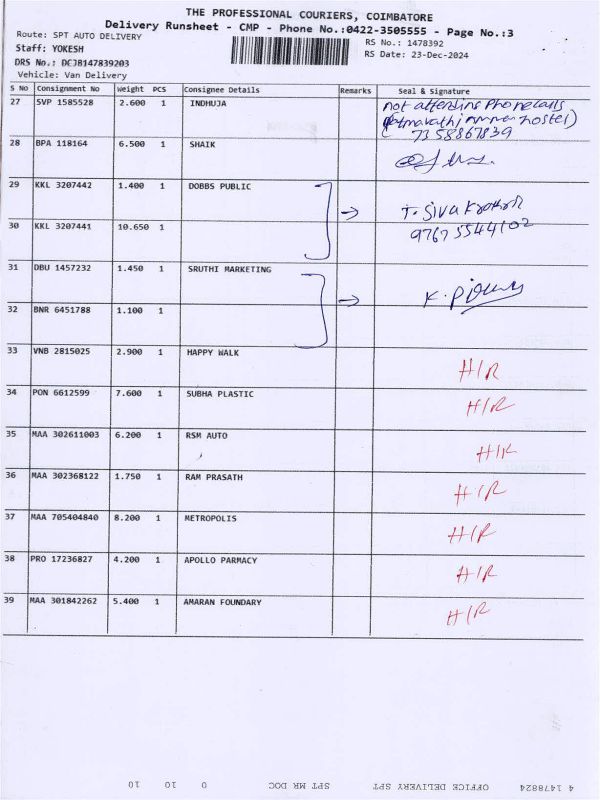 THE PROFESSIONAL COURIERS, COIMBATORE
Delivery Runsheet - CMP - Phone No.:0422-3505555 - Page No.:3
Route: SPT AUTO DELIVERY
RS No.: 1478392
Staff: YOKESH
RS Date: 23-Dec-2024
DRS No.: DCJB147839203
Vehicle: Van Delivery
S No Consignment No Weight PCS Consignee Details Remarks Seal & Signature
27 SVP 1585528 2.600 1 INDHUJA not attending Phone calls
7358867839
28 BPA 118164 6.500 1 SHAIK
29 KKL 3207442 1.400 1 DOBBS PUBLIC → T. Siva
30 KKL 3207441 10.650 1 97675544102
31 DBU 1457232 1.450 1 SRUTHI MARKETING → K.
32 BNR 6451788 1.100 1
33 VNB 2815025 2.900 1 HAPPY WALK H/R
34 PON 6612599 7.600 1 SUBHA PLASTIC H/R
35 MAA 302611003 6.200 1 RSM AUTO H/R
36 MAA 302368122 1.750 1 RAM PRASATH H/R
37 MAA 705404840 8.200 1 METROPOLIS H/R
38 PRO 17236827 4.200 1 APOLLO PARMACY H/R
39 MAA 301842262 5.400 1 AMARAN FOUNDARY H/R
4 1478824 OFFICE DELIVERY SPT SPT MR DOC 0 10 10